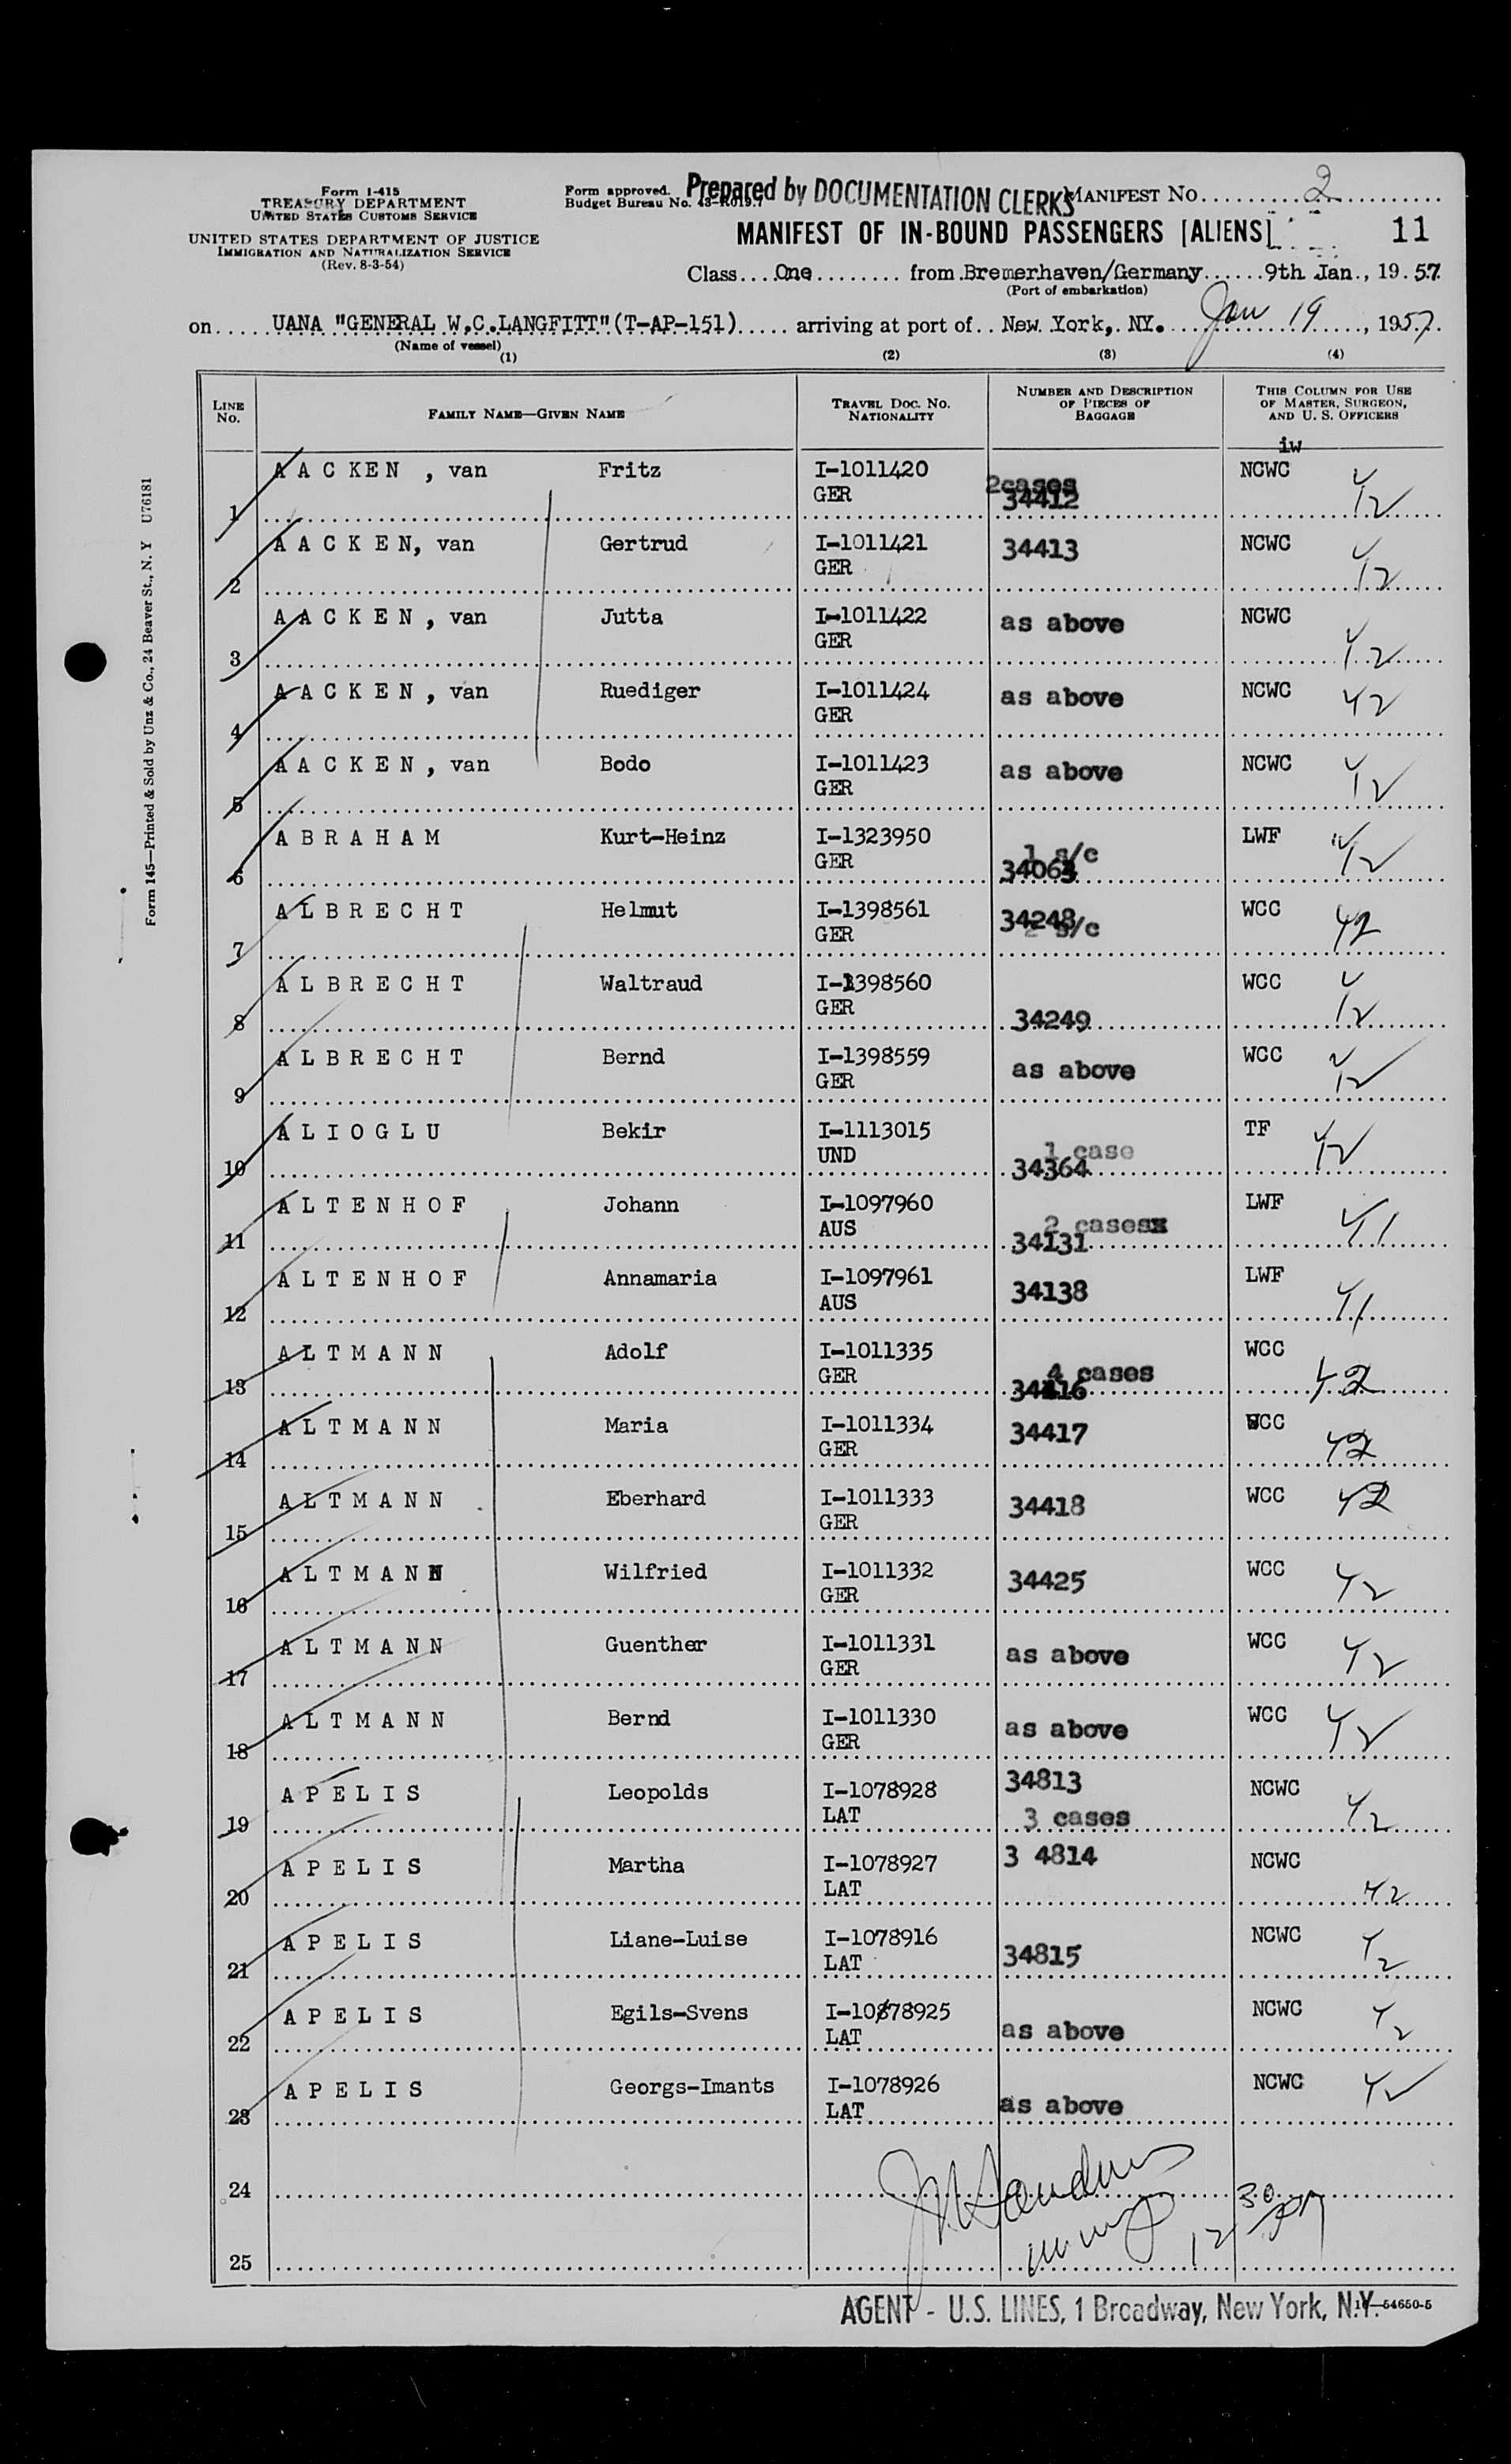 Form I-415
TREASURY DEPARTMENT
UNITED STATES CUSTOMS SERVICE
UNITED STATES DEPARTMENT OF JUSTICE
IMMIGRATION AND NATURALIZATION SERVICE
(Rev. 8-3-54)
Form approved.
Budget Bureau No. 43-R019.7
Prepared by DOCUMENTATION CLERKS
MANIFEST No. 2
MANIFEST OF IN-BOUND PASSENGERS [ALIENS] 11
Class....One........ from.Bremerhaven/Germany......9th Jan., 19.57.
(Port of embarkation)
on.....UANA "GENERAL W.C.LANGFITT"(T-AP-151)..... arriving at port of..New York,.NY. Jan 19, 1957.
(Name of vessel)
(1) (2) (3) (4)
LINE No. FAMILY NAME—GIVEN NAME TRAVEL DOC. NO. NATIONALITY NUMBER AND DESCRIPTION OF PIECES OF BAGGAGE THIS COLUMN FOR USE OF MASTER, SURGEON, AND U. S. OFFICERS
iw
1 AACKEN , van Fritz I-1011420 GER 2cases 34412 NCWC 42
2 AACKEN, van Gertrud I-1011421 GER 34413 NCWC 42
3 AACKEN, van Jutta I-1011422 GER as above NCWC 42
4 AACKEN, van Ruediger I-1011424 GER as above NCWC 42
5 AACKEN, van Bodo I-1011423 GER as above NCWC 42
6 ABRAHAM Kurt-Heinz I-1323950 GER 1 s/c LWF 42
7 ALBRECHT Helmut I-1398561 GER 34248 2 s/c WCC 42
8 ALBRECHT Waltraud I-1398560 GER 34249 WCC 42
9 ALBRECHT Bernd I-1398559 GER as above WCC 42
10 ALIOGLU Bekir I-1113015 UND 1 case 34364 TF 42
11 ALTENHOF Johann I-1097960 AUS 2 cases 34131 LWF 41
12 ALTENHOF Annamaria I-1097961 AUS 34138 LWF 41
13 ALTMANN Adolf I-1011335 GER 4 cases 34416 WCC 42
14 ALTMANN Maria I-1011334 GER 34417 WCC 42
15 ALTMANN Eberhard I-1011333 GER 34418 WCC 42
16 ALTMANN Wilfried I-1011332 GER 34425 WCC 42
17 ALTMANN Guenther I-1011331 GER as above WCC 42
18 ALTMANN Bernd I-1011330 GER as above WCC 42
19 APELIS Leopolds I-1078928 LAT 34813 3 cases NCWC 42
20 APELIS Martha I-1078927 LAT 3 4814 NCWC 42
21 APELIS Liane-Luise I-1078916 LAT 34815 NCWC 42
22 APELIS Egils-Svens I-1078925 LAT as above NCWC 42
23 APELIS Georgs-Imants I-1078926 LAT as above NCWC 42
24
12 30 PM
25
AGENT - U.S. LINES, 1 Broadway, New York, N.Y.
16—54650-5
Form 145—Printed & Sold by Unz & Co., 24 Beaver St., N. Y U76181